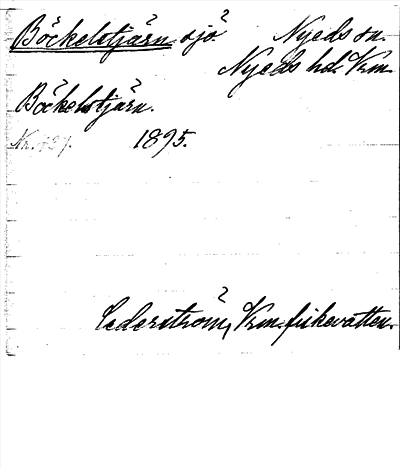 Böckelstjärn sjö. Nyeds sn.
Nyeds hd. Vrm.
Böckelstjärn.
1895.
Cederström, Vrm. fiskevatten.